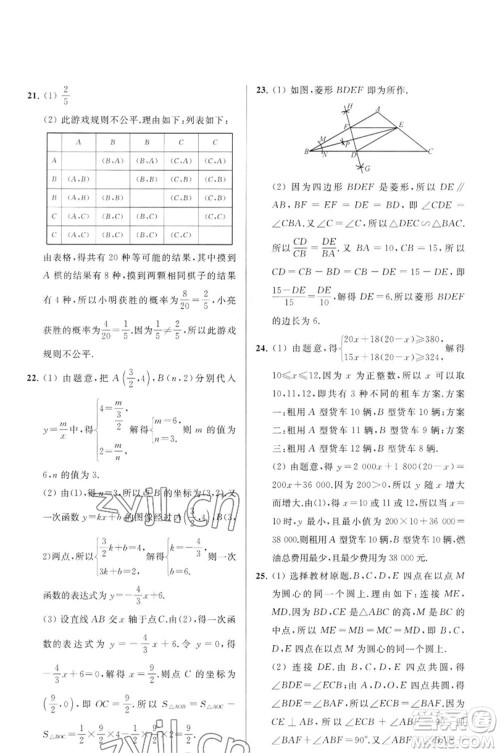 21. (1) 2/5
(2) 此游戏规则不公平. 理由如下: 列表如下:
A B B C C
A (B,A) (B,A) (C,A) (C,A)
B (A,B) (B,B) (C,B) (C,B)
B (A,B) (B,B) (C,B) (C,B)
C (A,C) (B,C) (B,C) (C,C)
C (A,C) (B,C) (B,C) (C,C)
由表格, 得共有 20 种等可能的结果, 其中摸到
A 棋的结果有 8 种, 摸到两颗相同棋子的结果
有 4 种, 所以小明获胜的概率为 8/20 = 2/5, 小亮
获胜的概率为 4/20 = 1/5. 因为 2/5 ≠ 1/5, 所以此游戏
规则不公平.
22. (1) 由题意, 把 A(3/2, 4), B(n, 2) 分别代入
y = m/x 中, 得 { 4 = m/(3/2), 2 = m/n. 解得 { m=6, n=3. 则 m 的值为
6, n 的值为 3.
(2) 由(1), 得点 B 的坐标为 (3, 2). 因为一
次函数 y=kx+b 的图像经过 A(3/2, 4), B(3,
2) 两点, 所以 { 3/2 k+b=4, 3k+b=2. 解得 { k=−4/3, b=6. 则一次函数
的表达式为 y=−4/3 x+6.
(3) 设直线 AB 交 x 轴于点 C. 由(2), 得一次
函数的表达式为 y=−4/3 x+6. 令 y=0, 得 x=
9/2, 即 OC = 9/2. 所以 S△AOB = S△AOC − S△BOC =
23. (1) 如图, 菱形 BDEF 即为所作.
H
A
F
E
M
P
B
N
D
C
G
(2) 因为四边形 BDEF 是菱形, 所以 DE∥
AB, BF = DE = BD = EF. 所以 ∠CDE =
∠CBA, ∠CED = ∠A. 所以 △DEC∽△BAC.
所以 CD/CB = DE/BA. 因为 BC = 15, AB = 10,
CD = CB − BD = CB − DE = 15 − DE, 所以
(15−DE)/15 = DE/10. 解得 DE = 6. 所以菱形 BDEF
的边长为 6.
24. (1) 由题意, 得 { 20x+18(20−x)≥380, 15x+18(20−x)≥324. 解得
10≤x≤12. 因为 x 为正整数, 所以 x 可以取
10, 11, 12. 所以共有 3 种不同的租车方案. 方案
一: 租用 A 型货车 10 辆, B 型货车 10 辆; 方案
二: 租用 A 型货车 11 辆, B 型货车 9 辆; 方案
三: 租用 A 型货车 12 辆, B 型货车 8 辆.
(2) 由题意, 得 y = 2 000x + 1 800(20−x) =
200x+36 000. 因为 200>0, 所以 y 随 x 增大
而增大. 由(1), 得 10≤x≤12, 所以当 x=
10 时, y 最小, 最小值为 200×10+36 000=
38 000. 故当租用 A 型货车 10 辆, B 型货车 10 辆时, 燃
油总费用最少, 且最少费用为 38 000 元.
25. (1) 选择教材原题. B, C, D, E 四点在以点 M 为
圆心的同一个圆上. 理由如下: 连接 ME,
MD. 因为 BD, CE 是 △ABC 的高, M 是 BC
的中点, 所以 ME=MD=MB=MC=1/2 BC.
所以 B, C, D, E 四点在以点 M 为圆心的同一
个圆上.
(2) 连接 DE. 由 B, C, D, E 四点共圆, 得
∠BDE=∠BCE. 由 A, B, D, E 四点共圆, 得
∠BDE=∠BAF. 所以 ∠BAF=∠BCE. 因为
CE⊥AB, 所以 ∠BEC=90°. 所以 ∠BAF+
∠ABF = ∠BCE + ∠ABF = 90°. 所以
zyjl.cn